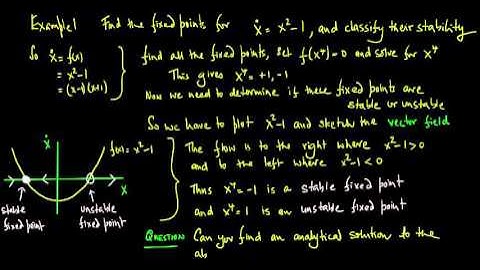 Example 1 Find the fixed points for ẋ = x²-1, and classify their stability
So ẋ = f(x)
= x²-1
= (x-1)(x+1)
find all the fixed points, set f(x*)=0 and solve for x*
This gives x* = +1, -1
Now we need to determine if these fixed points are
stable or unstable
So we have to plot x²-1 and sketch the vector field
ẋ
f(x) = x²-1
x
stable
fixed point
unstable
fixed point
The flow is to the right where x²-1>0
and to the left where x²-1<0
Thus x* = -1 is a stable fixed point
and x* = 1 is an unstable fixed point
QUESTION: Can you find an analytical solution to the
ab